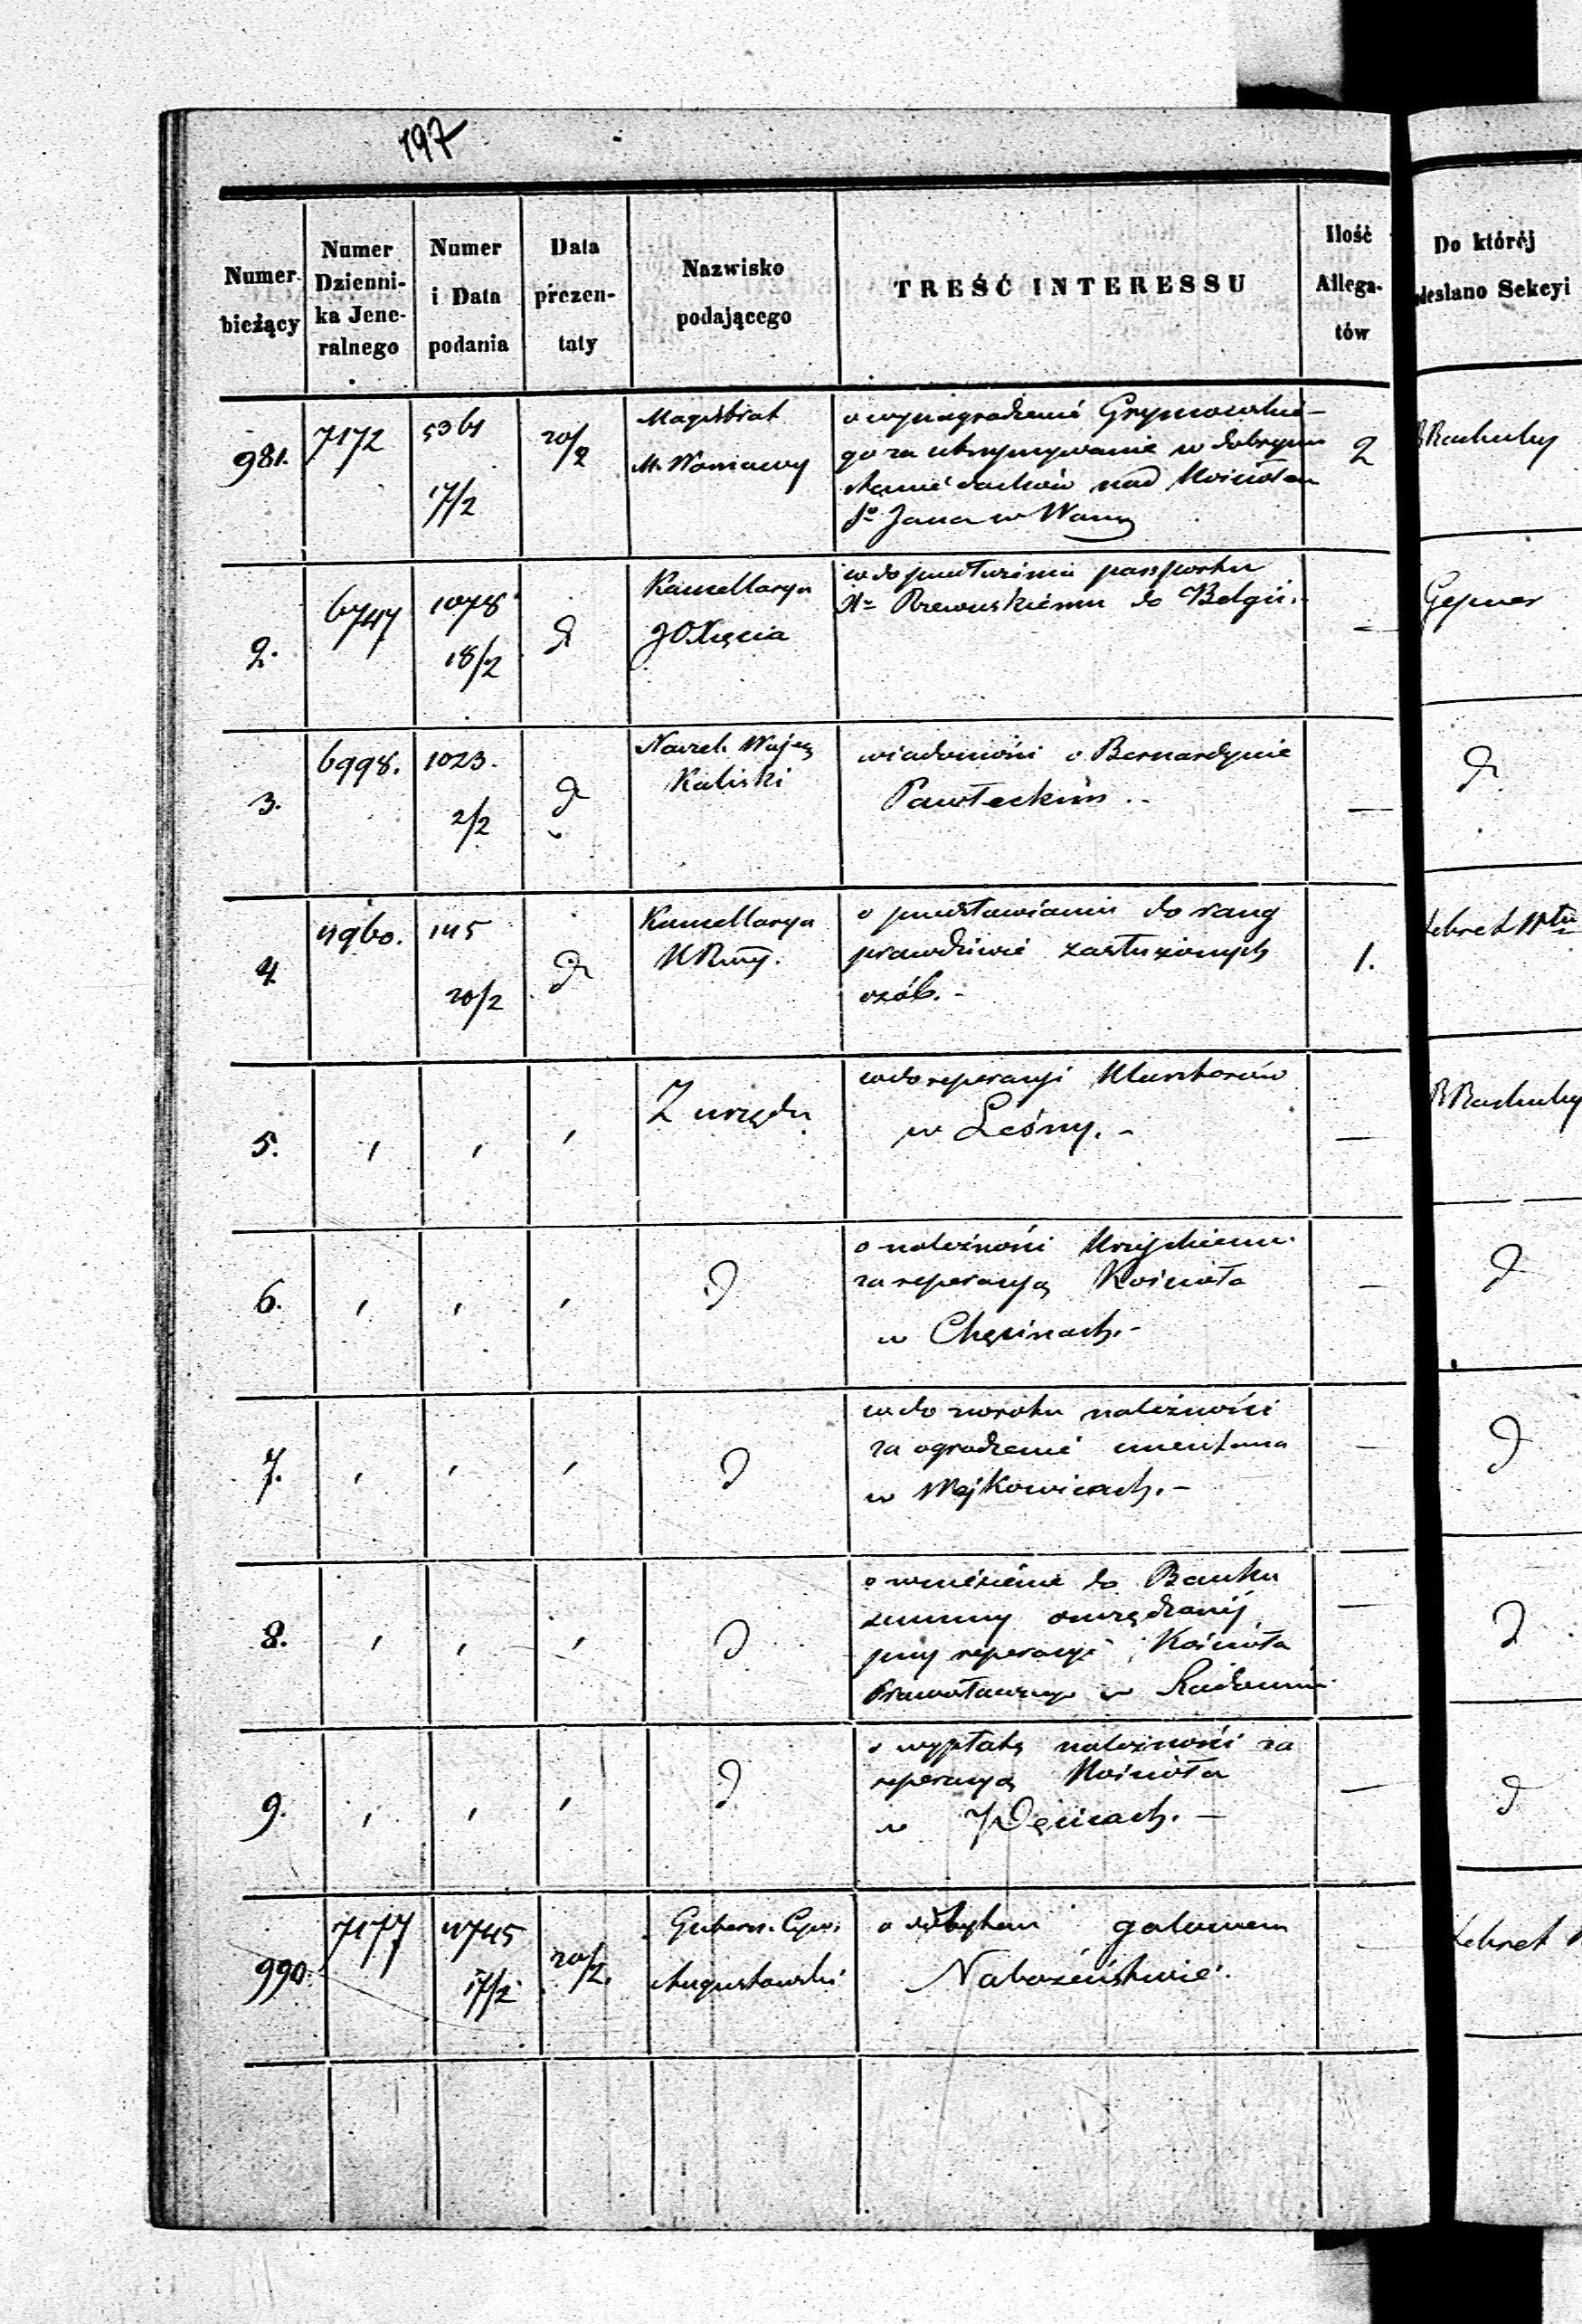 197
Numer bieżący
Numer Dzienni-ka Jene-ralnego
Numer i Data podania
Data prezen-taty
Nazwisko podającego
TREŚĆ INTERESSU
Ilość Allega-tów
Do któréj
desłano Sekcyi
981.
7172
17/2
20/2
Magistrat
M. Warszawy
o wynagrodzenie
go za utrzymywanie w dobrym
stanie dachów nad Kościołem
Sº Jana w Warsz
2
Rachuby
2.
6747
1078
18/2
d
Kancellarya
JO Xięcia
wdo passportu
Rzewuskiemu do Belgii.
—
3.
6998.
1023.
2/2
d
Naczel. Wojen
Kaliski
wiadomości o Bernardynie
Pawłeckim.
—
d
4
145
20/2
d
Kancellarya
o przedstawianiu do rang
prawdziwie zasłużonych
osób. -
1.
5.
Z urzędu
wdo reperacyi Klasztorów
w Leśny. -
—
Rachuby
6.
d
o należności
za reperacyą Kościoła
w Chęcinach. -
—
d
7.
d
wdo zwrotu należności
za ogrodzenie cmentarza
w Mejkowicach. -
—
d
8.
d
o wniesienie do Banku
summy
przy reperacyi Kościoła
Prawosławnego w Radomiu
—
d
9.
d
o wypłatę należności za
reperacyą Kościoła
w
—
d
990.
7177
17/2
20/2.
Gubern. Cyw.
Augustowski
o odbytem galowem
Nabożeństwie.
—